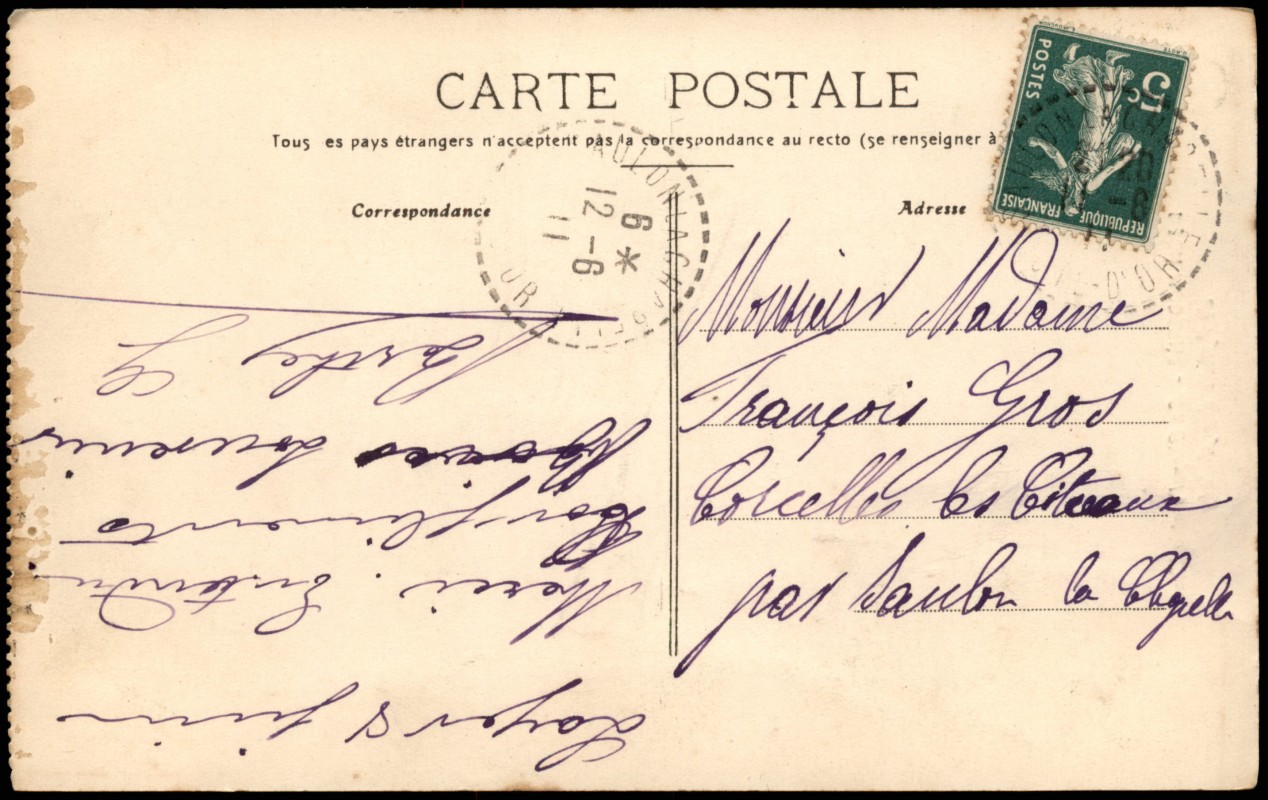 CARTE POSTALE
Tous les pays étrangers n'acceptent pas la correspondance au recto (se renseigner à
Correspondance
Adresse
5c
POSTES
REPUBLIQUE FRANÇAISE
SAULON-LA-CHAPELLE
6 *
12-6
11
CÔTE-D'OR
Monsieur Madame
François Gros
Corcelles les Citeaux
par Saulon la Chapelle
8 juin
Merci. Entendu
Compliments
Bons souvenir